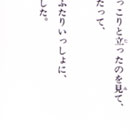 っこりと立ったのを見て、
たって、
ふたりいっしょに、
した。